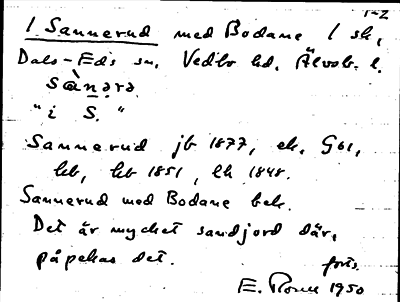 1-2
1. Sannerud med Bodane 1 sk.
Dals-Eds sn. Vedbo hd. Älvsb. l.
sànərə
"i S."
Sannerud jb 1877, ek. G61,
hbl 1851, lk 1848.
Sannerud med Bodane bek.
Det är mycket sandjord där,
påpekas det.
forts.
E. 1950